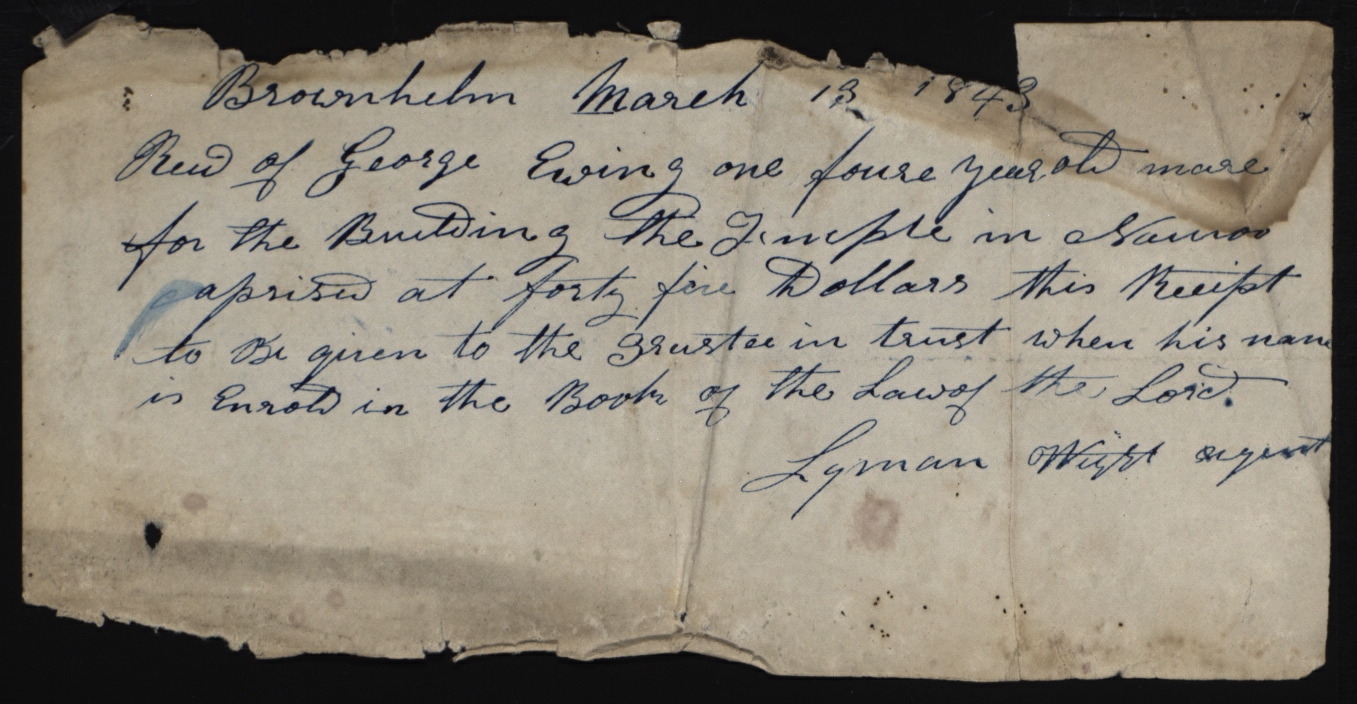 Brownhelm March 13 1843
Recd of George Ewing one foure year old mare
for the Building the Temple in Nauvoo
aprised at forty five Dollars this Receipt
to Be given to the Trustee in trust when his name
is Enrold in the Book of the Law of the Lord.
Lyman Wight agent